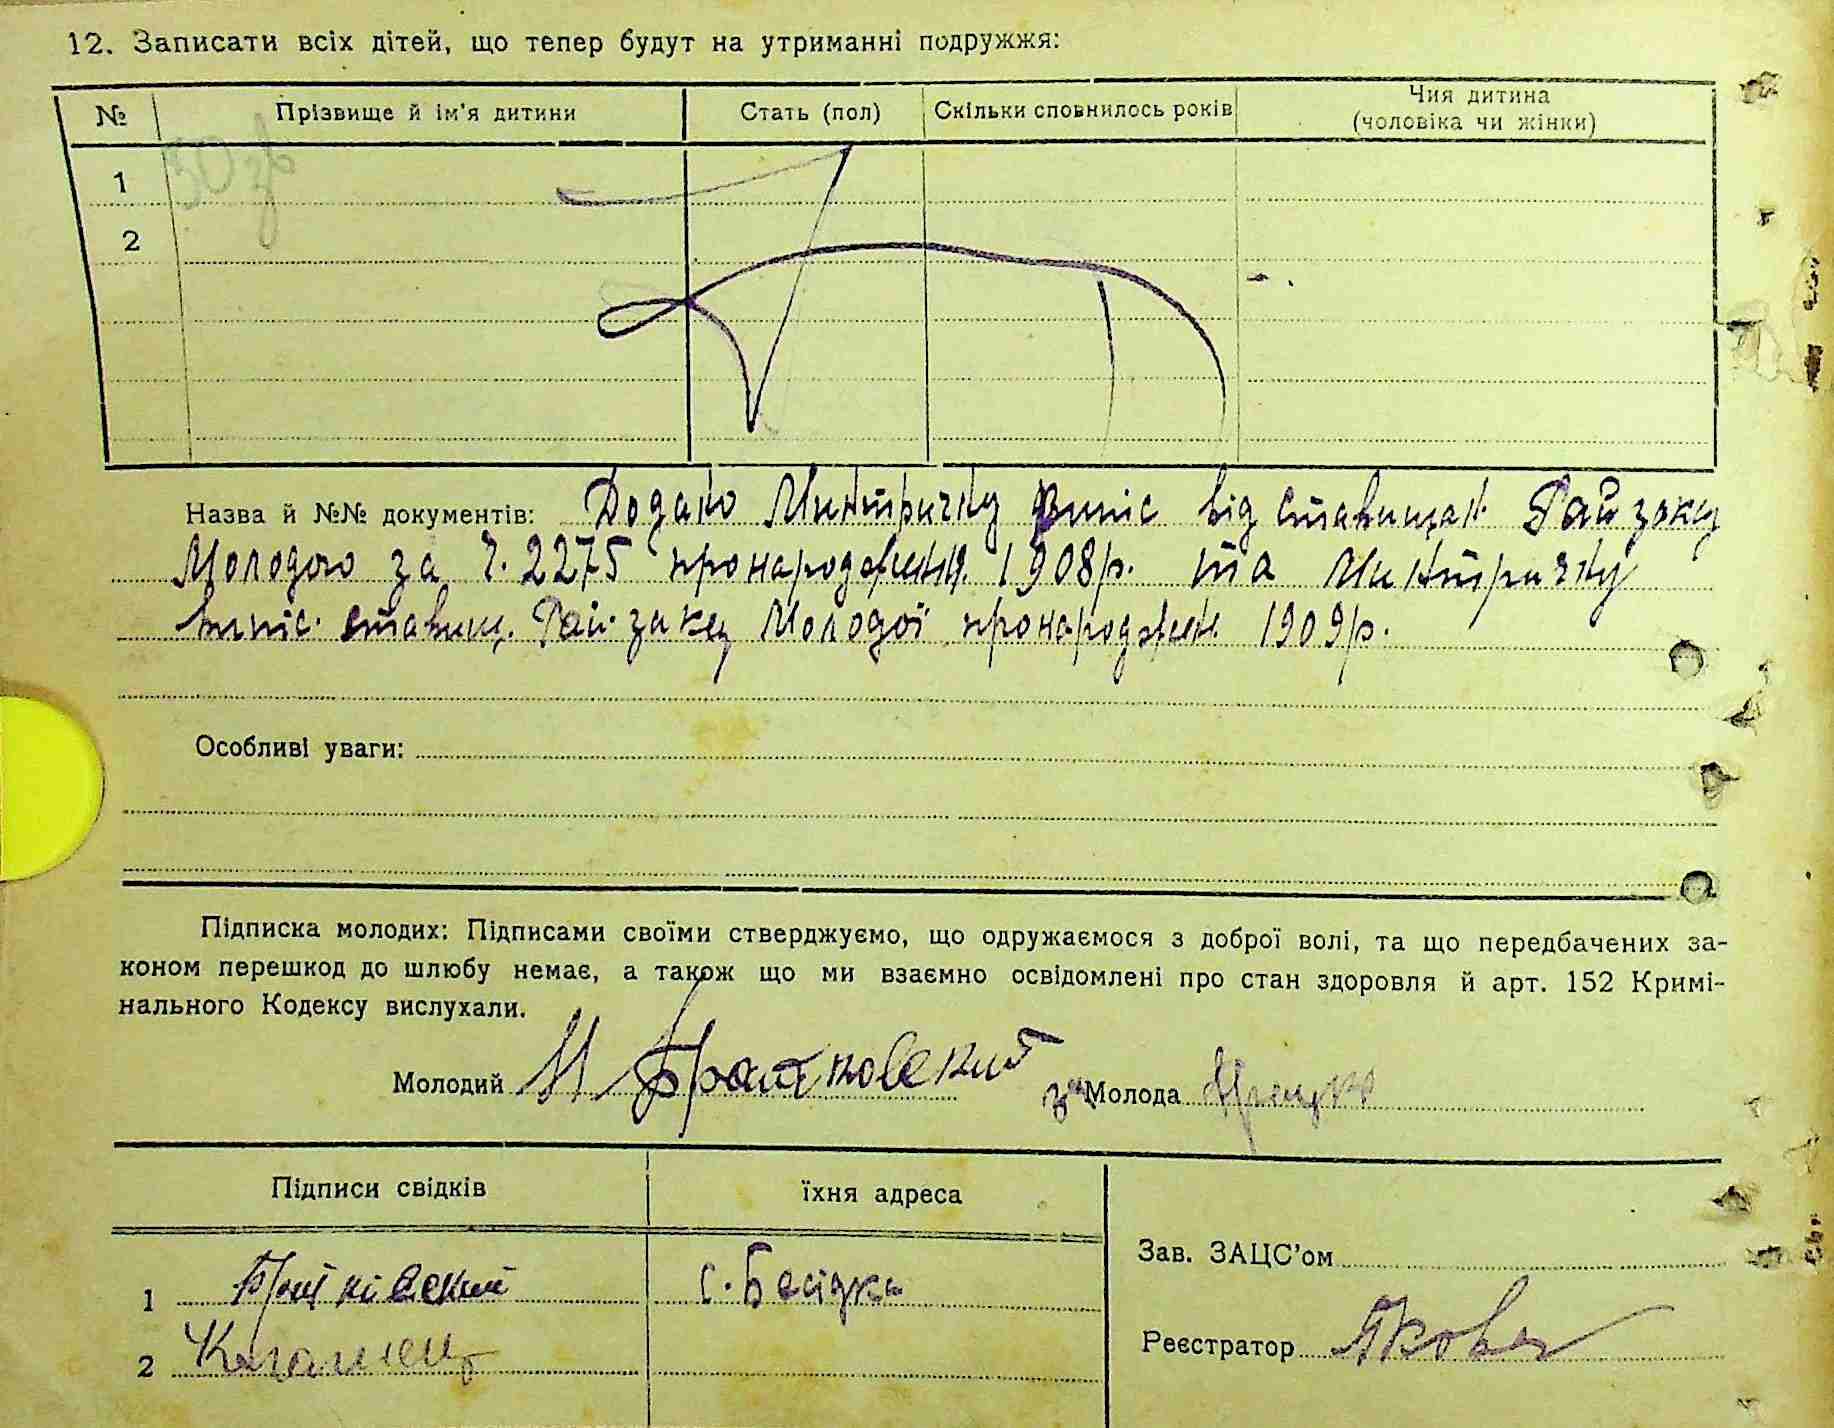 12. Записати всіх дітей, що тепер будут на утриманні подружжя:
№ Прізвище й ім'я дитини Стать (пол) Скільки сповнилось років Чия дитина
(чоловіка чи жінки)
1
2
Назва й №№ документів: Додано Минтричну випіс від Ставищан. Райзаку
Молодого за ч. 2275 пронародження. 1908р. та Минтричну
випіс. ставищ. Рай. заку Молодої пронароджен. 1909р.
Особливі уваги:
Підписка молодих: Підписами своїми стверджуємо, що одружаємося з доброї волі, та що передбачених за-
коном перешкод до шлюбу немає, а також що ми взаємно освідомлені про стан здоровля й арт. 152 Кримі-
нального Кодексу вислухали.
Молодий Братковский за Молода
Підписи свідків їхня адреса
Зав. ЗАЦС'ом
1 с. Бесідка
Реєстратор
2